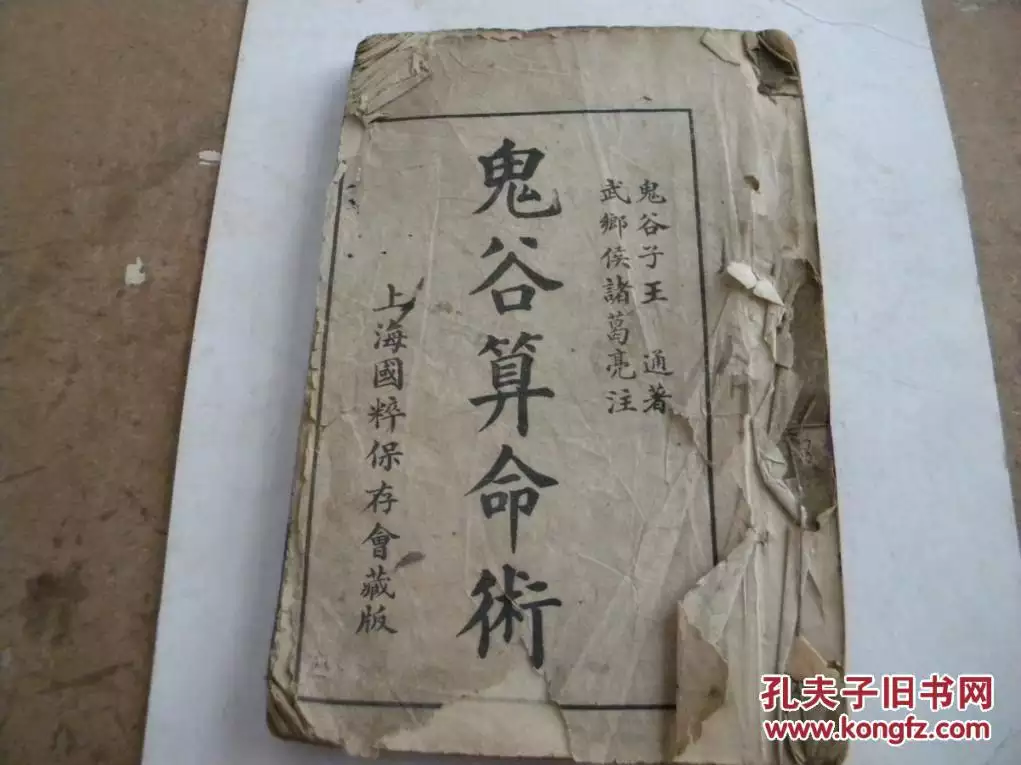 鬼谷子王 通著
武鄉侯諸葛亮注
鬼谷算命術
上海國粹保存會藏版
孔夫子旧书网
www.kongfz.com